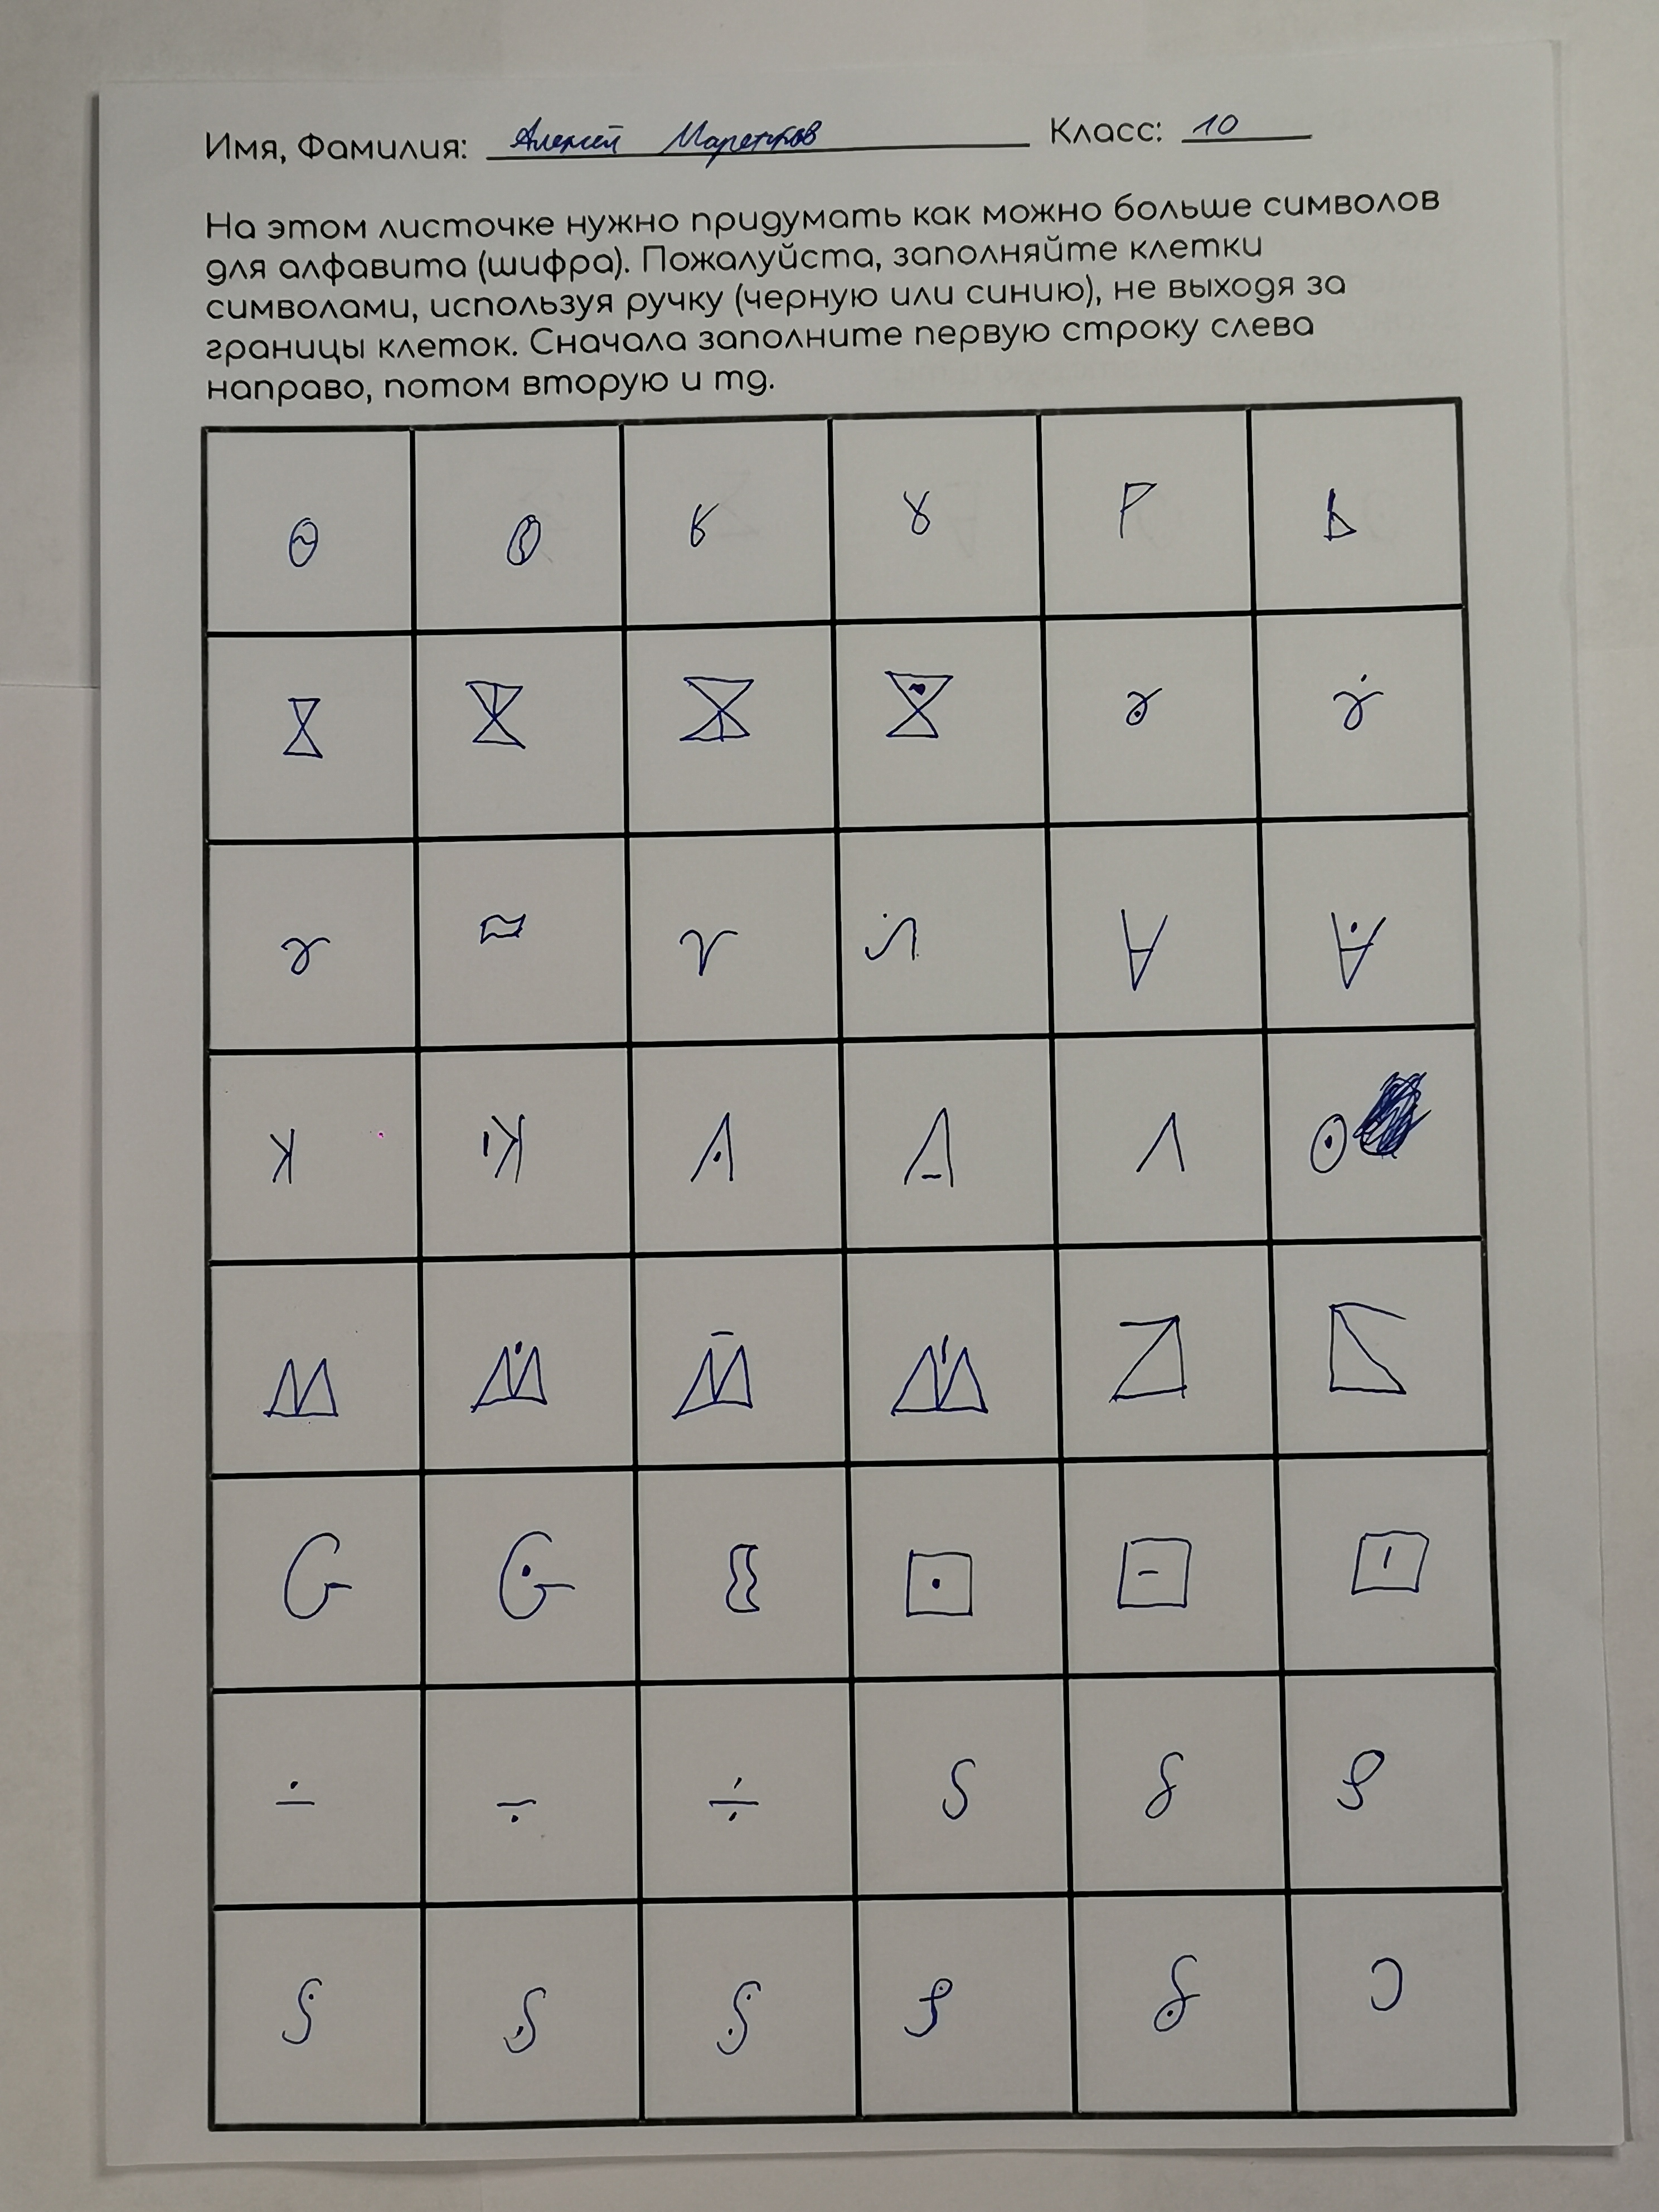 Имя, Фамилия: Алексей Класс: 10
На этом листочке нужно придумать как можно больше символов
для алфавита (шифра). Пожалуйста, заполняйте клетки
символами, используя ручку (черную или синию), не выходя за
границы клеток. Сначала заполните первую строку слева
направо, потом вторую и тд.